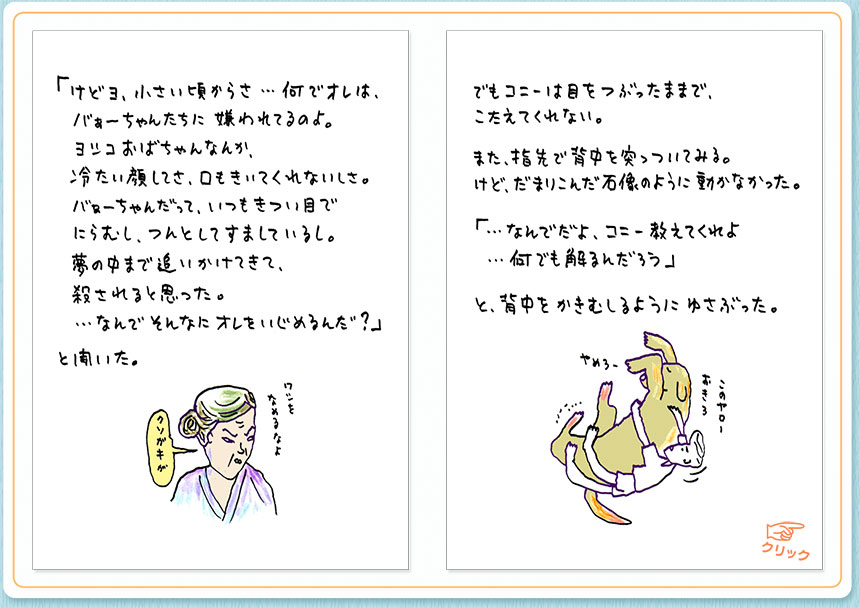 「けどヨ、小さい頃からさ…何でオレは、
バぁーちゃんたちに 嫌われてるのよ。
ヨシコおばちゃんなんか、
冷たい顔してさ、口もきいてくれないしさ。
バぁーちゃんだって、いつもきつい目で
にらむし、つんとしてすましているし。
夢の中まで追いかけてきて、
殺されると思った。
…なんでそんなにオレをいじめるんだ?」
と聞いた。
ワシを
なめるなよ
クソガキが
でもコニーは目をつぶったままで、
こたえてくれない。
また、指先で背中を突っついてみる。
けど、だまりこんだ石像のように動かなかった。
「…なんでだよ、コニー教えてくれよ
…何でも解るんだろう」
と、背中をかきむしるようにゆさぶった。
やめろー
このヤロー
おきろ
クリック